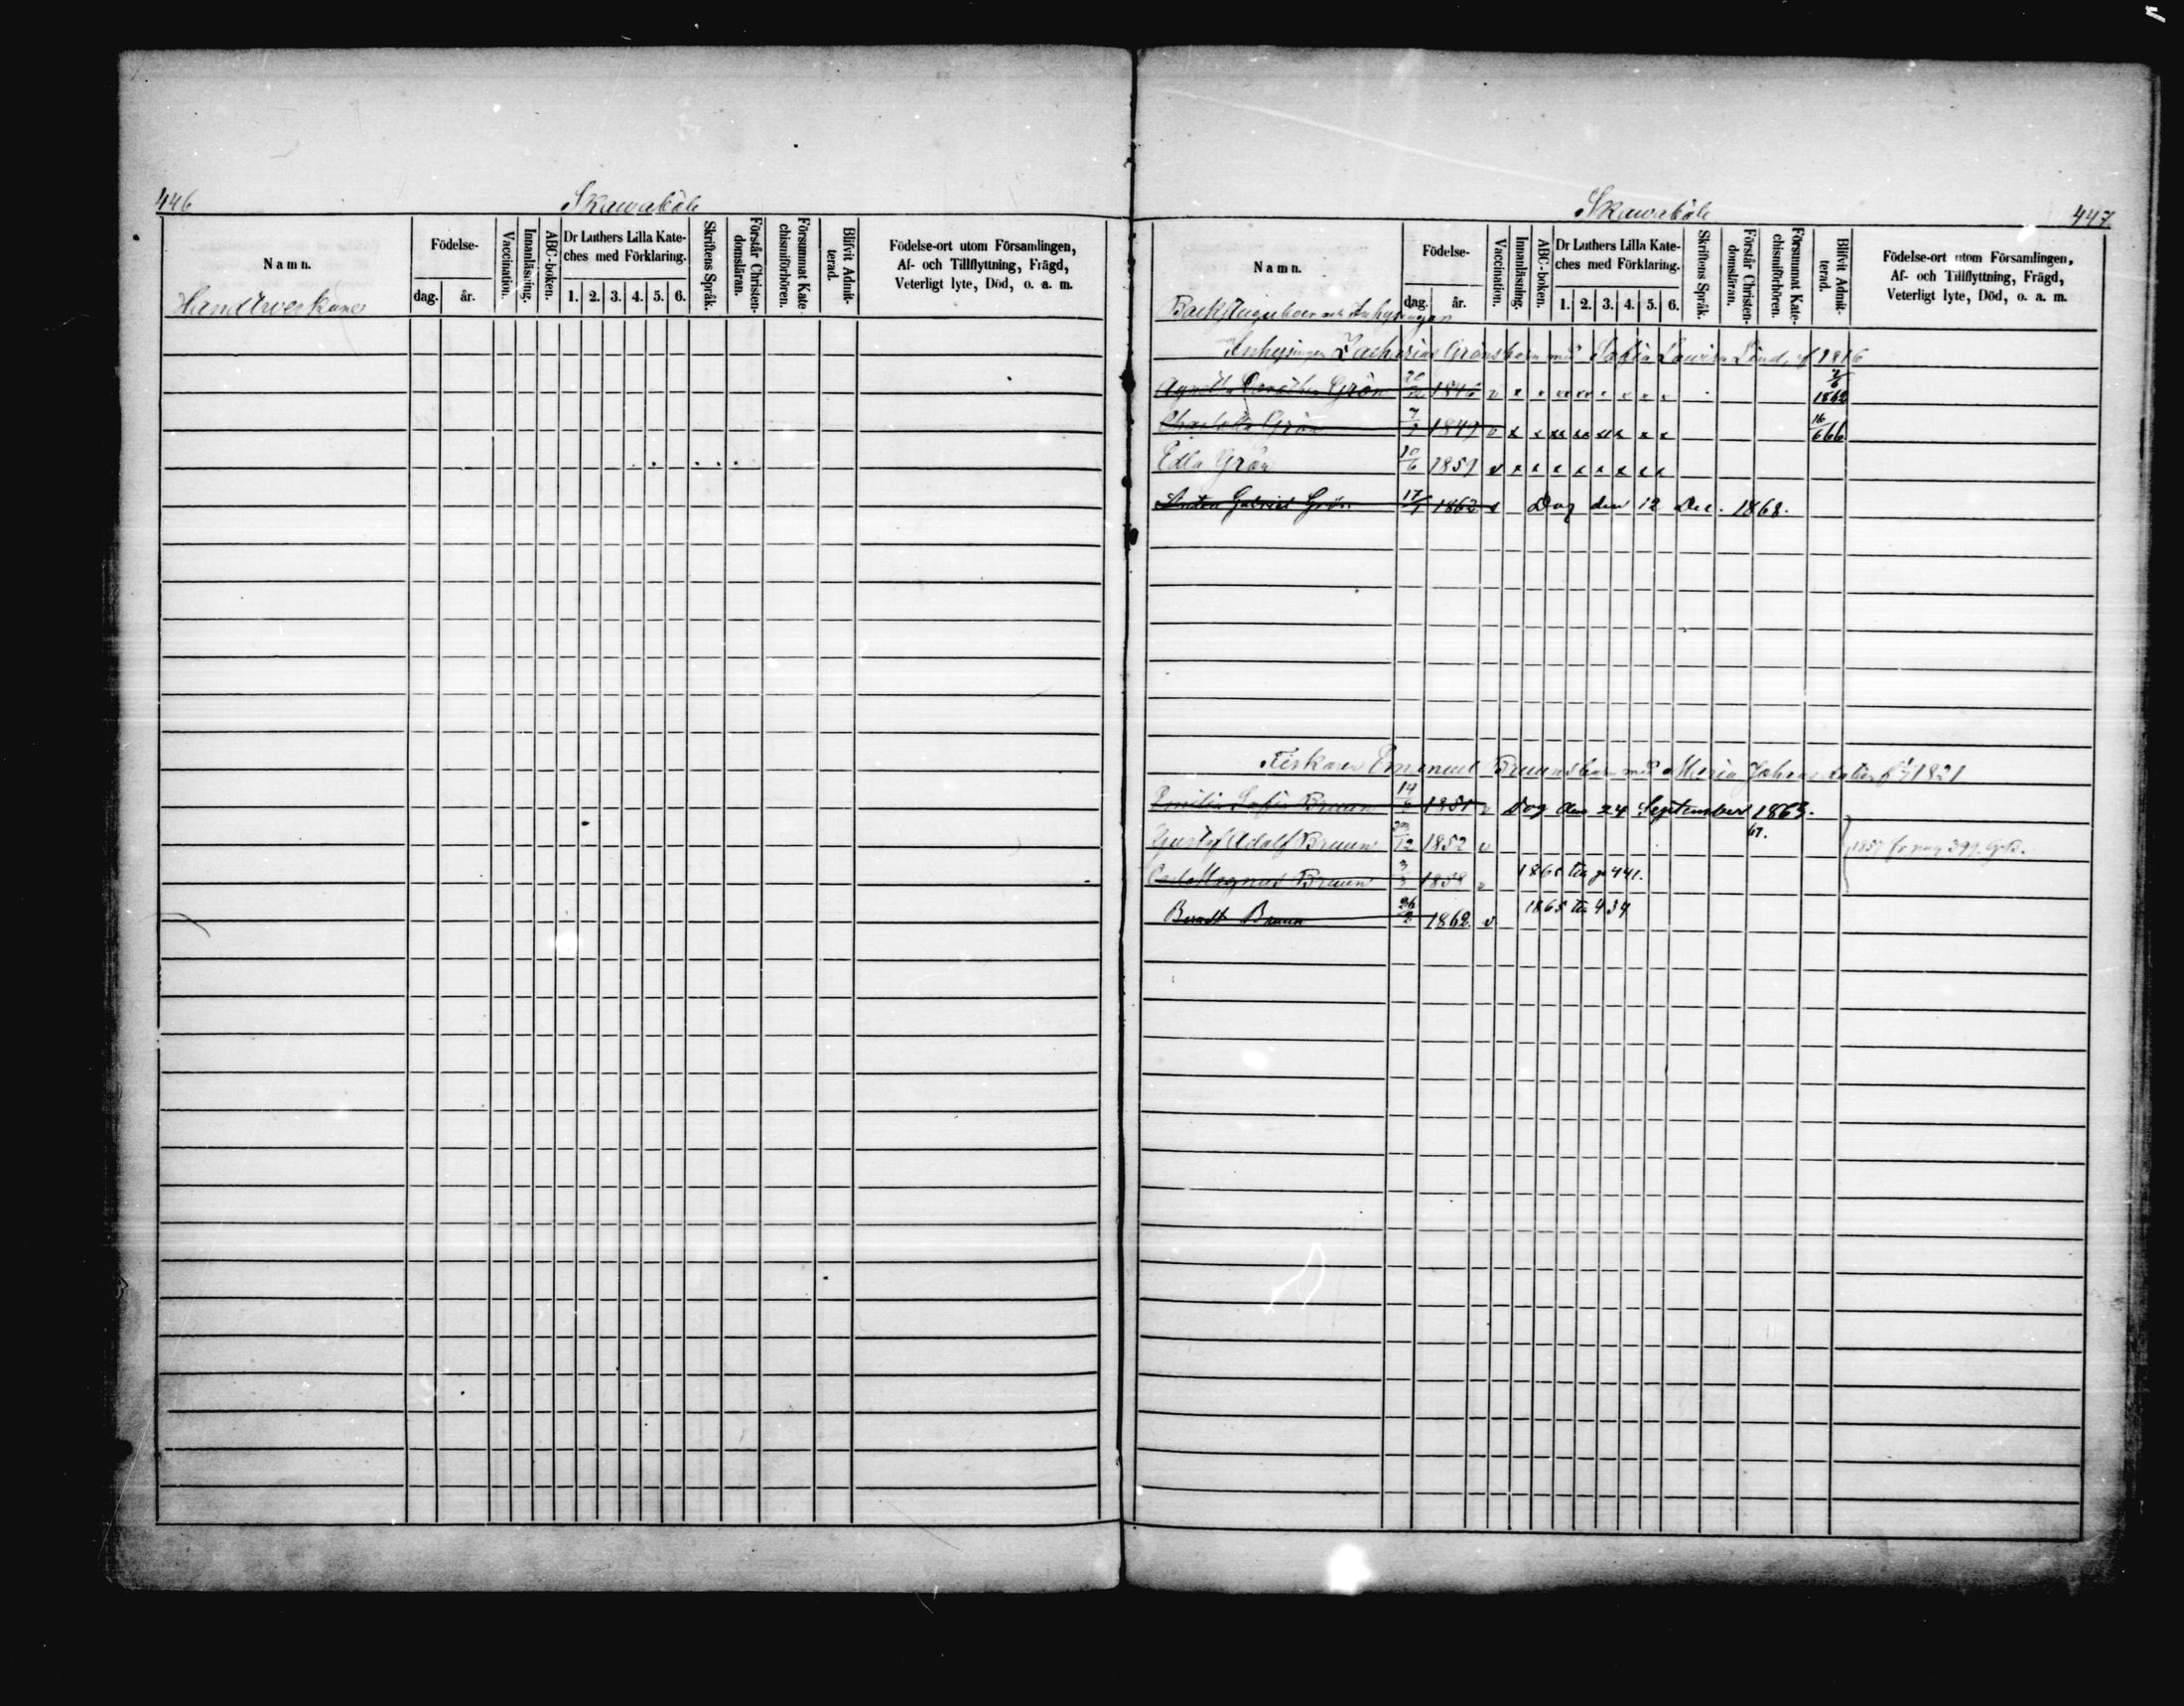 446
Skawaböle
Namn.
Födelse-
dag.
år.
Vaccination.
Innanläsning.
ABC-boken.
Dr Luthers Lilla Kate-
ches med Förklaring.
1. 2. 3. 4. 5. 6.
Skriftens Språk.
Förstår Christen-
domsläran.
Försummat Kate-
chismiförhören.
Blifvit Admit-
terad.
Födelse-ort utom Församlingen,
Af- och Tillflyttning, Frägd,
Veterligt lyte, Död, o. a. m.
Handtverkare
Skawaböle
447.
Namn.
Födelse-
dag.
år.
Vaccination.
Innanläsning.
ABC-boken.
Dr Luthers Lilla Kate-
ches med Förklaring.
1. 2. 3. 4. 5. 6.
Skriftens Språk.
Förstår Christen-
domsläran.
Försummat Kate-
chismiförhören.
Blifvit Admit-
terad.
Födelse-ort utom Församlingen,
Af- och Tillflyttning, Frägd,
Veterligt lyte, Död, o. a. m.
och Inhysingar
Inhysingen Zacharias Gröns barn med Sofia Lovisa 1816
Grön 1846 v 1862
Charlotta Grön 1849 v 16/6 66
Edla Grön 10/6 1859 v
Anton Gabriel Grön 17/ 1862 Dog den 12 Dec. 1868.
Fiskaren Emanuel Bruuns barn med Maria Johans 1821
Emilia Sofia Bruun 14/ 1851 v Dog den 24 September 1863.
Gustaf Adolf Bruun /12 1852 v 67.
1857 fr pag 399. G.B.
Carl Magnus Bruun 1858 v 1865 till p 441.
Bruun 26/2 1862. v 1865 till 434